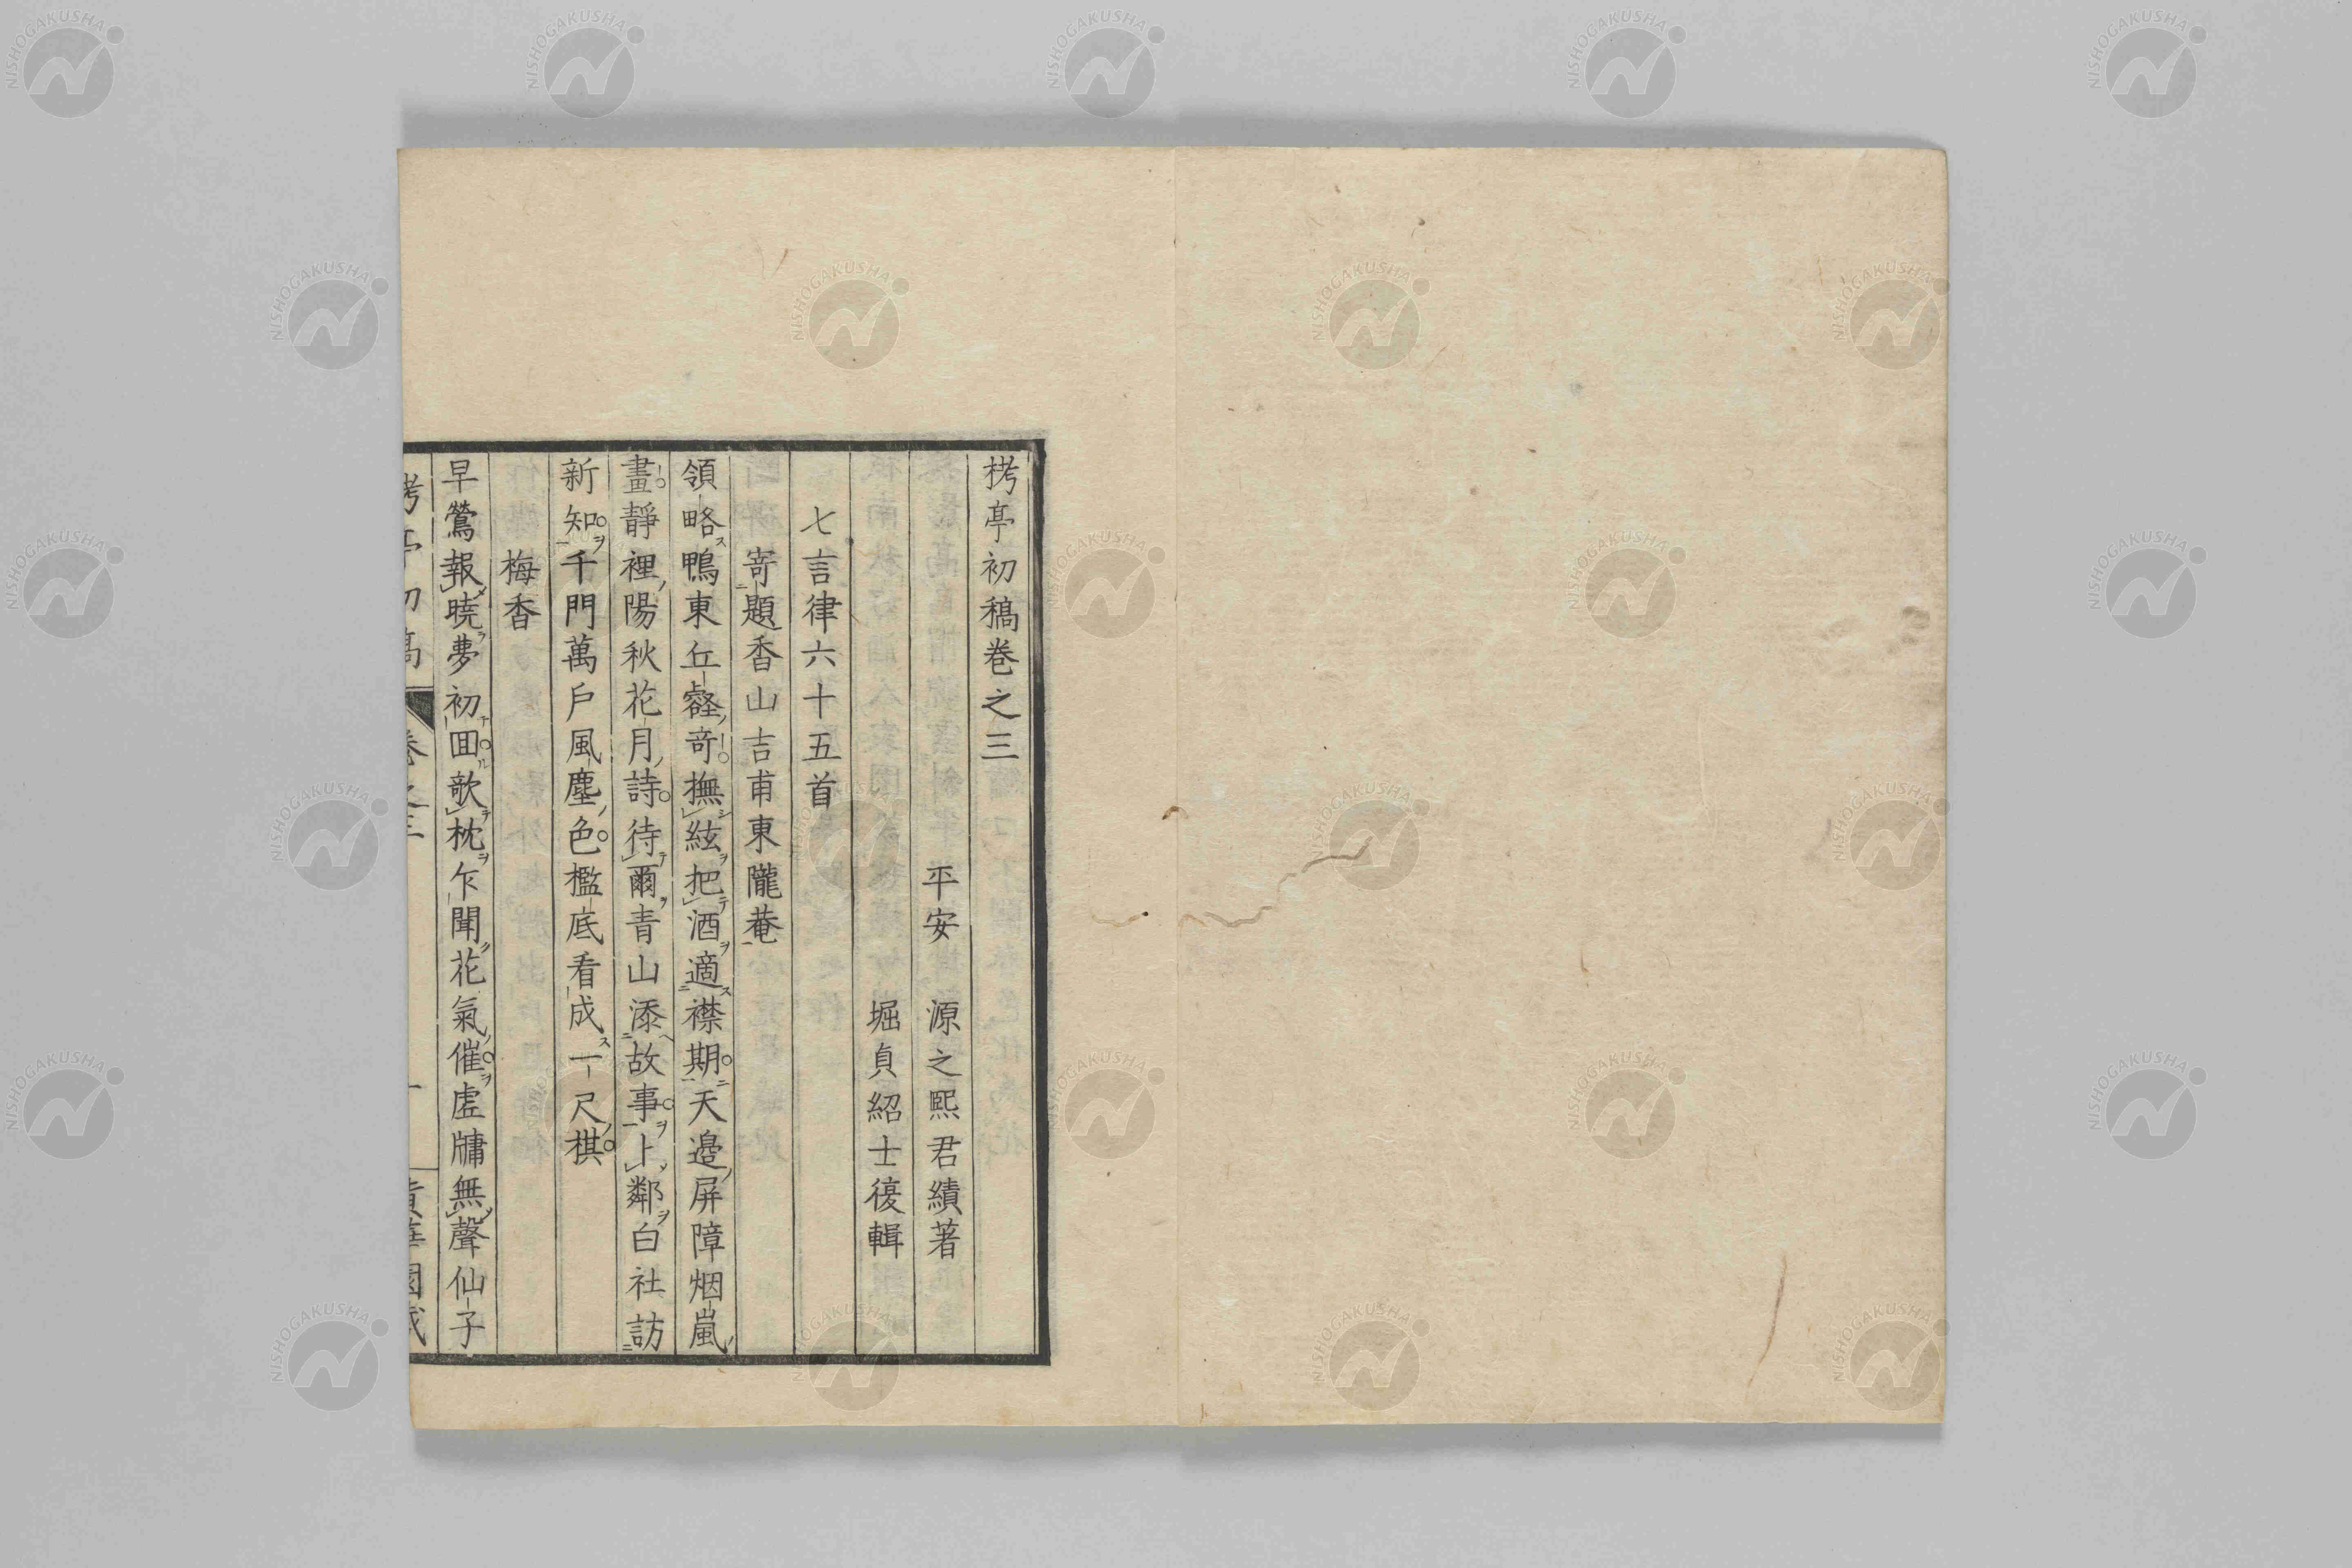 栲亭初稿卷之三
平安 源之熙君績著
堀貞紹士復輯
七言律六十五首
寄題香山吉甫東隴菴
領略鴨東丘壑奇撫絃把酒適襟期天邉屏障烟嵐
畫靜裡陽秋花月詩待爾青山添故事上鄰白社訪
新知千門萬戶風塵色檻底看成一尺棋
梅香
早鶯報曉夢初囬歌枕乍聞花氣催虗牗無聲仙子
栲亭初稿 卷之三 一
NISHOGAKUSHA